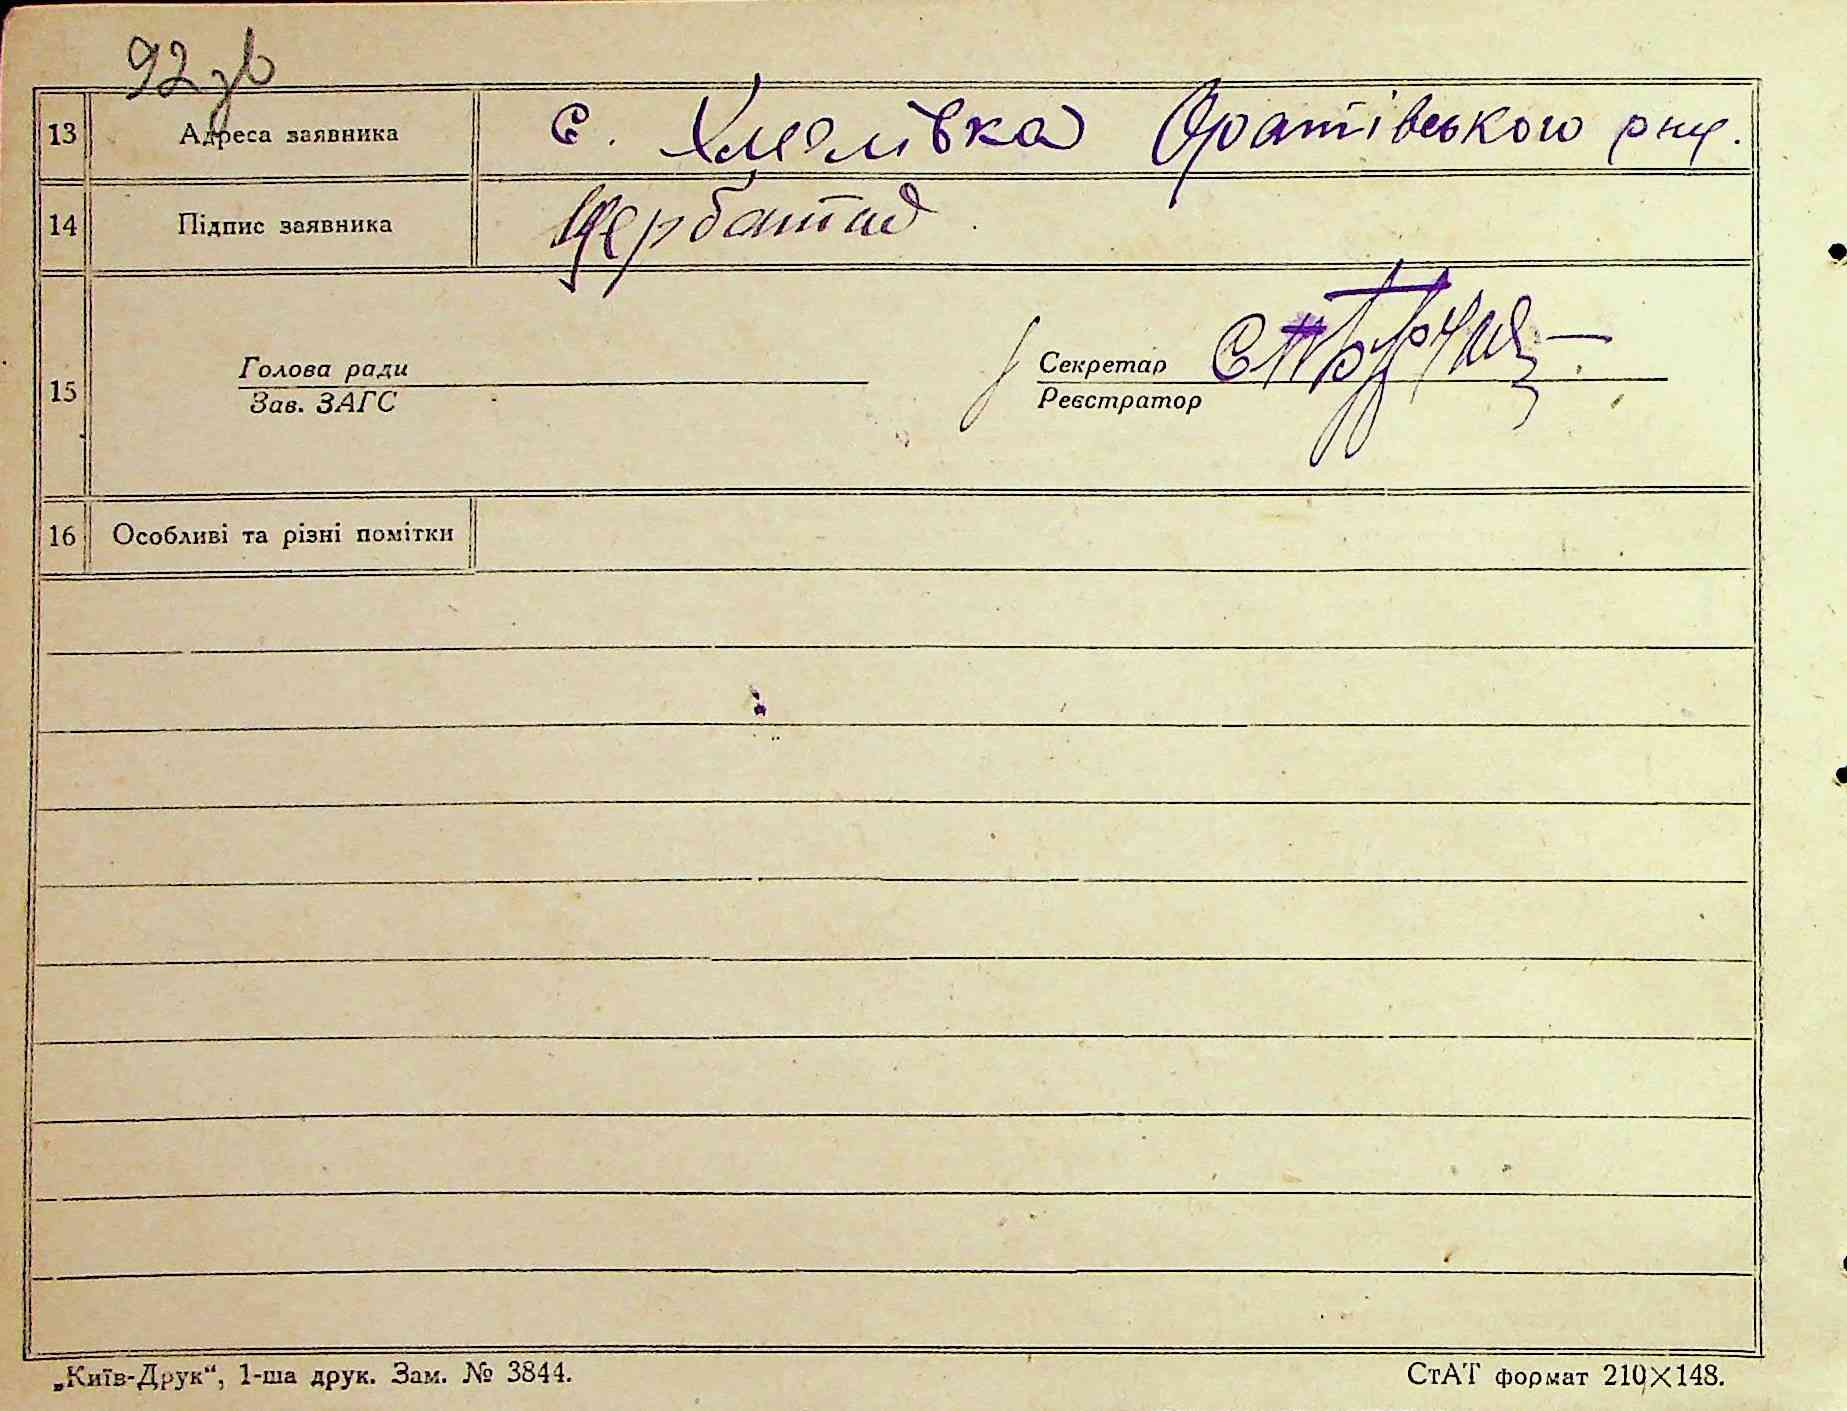 92 зв
13 Адреса заявника с. Хмелівка Оратівського рну.
14 Підпис заявника Щербатий
15
Голова ради
Зав. ЗАГС
Секретар
Реєстратор
16 Особливі та різні помітки
„Київ-Друк“, 1-ша друк. Зам. № 3844.
СтАТ формат 210×148.